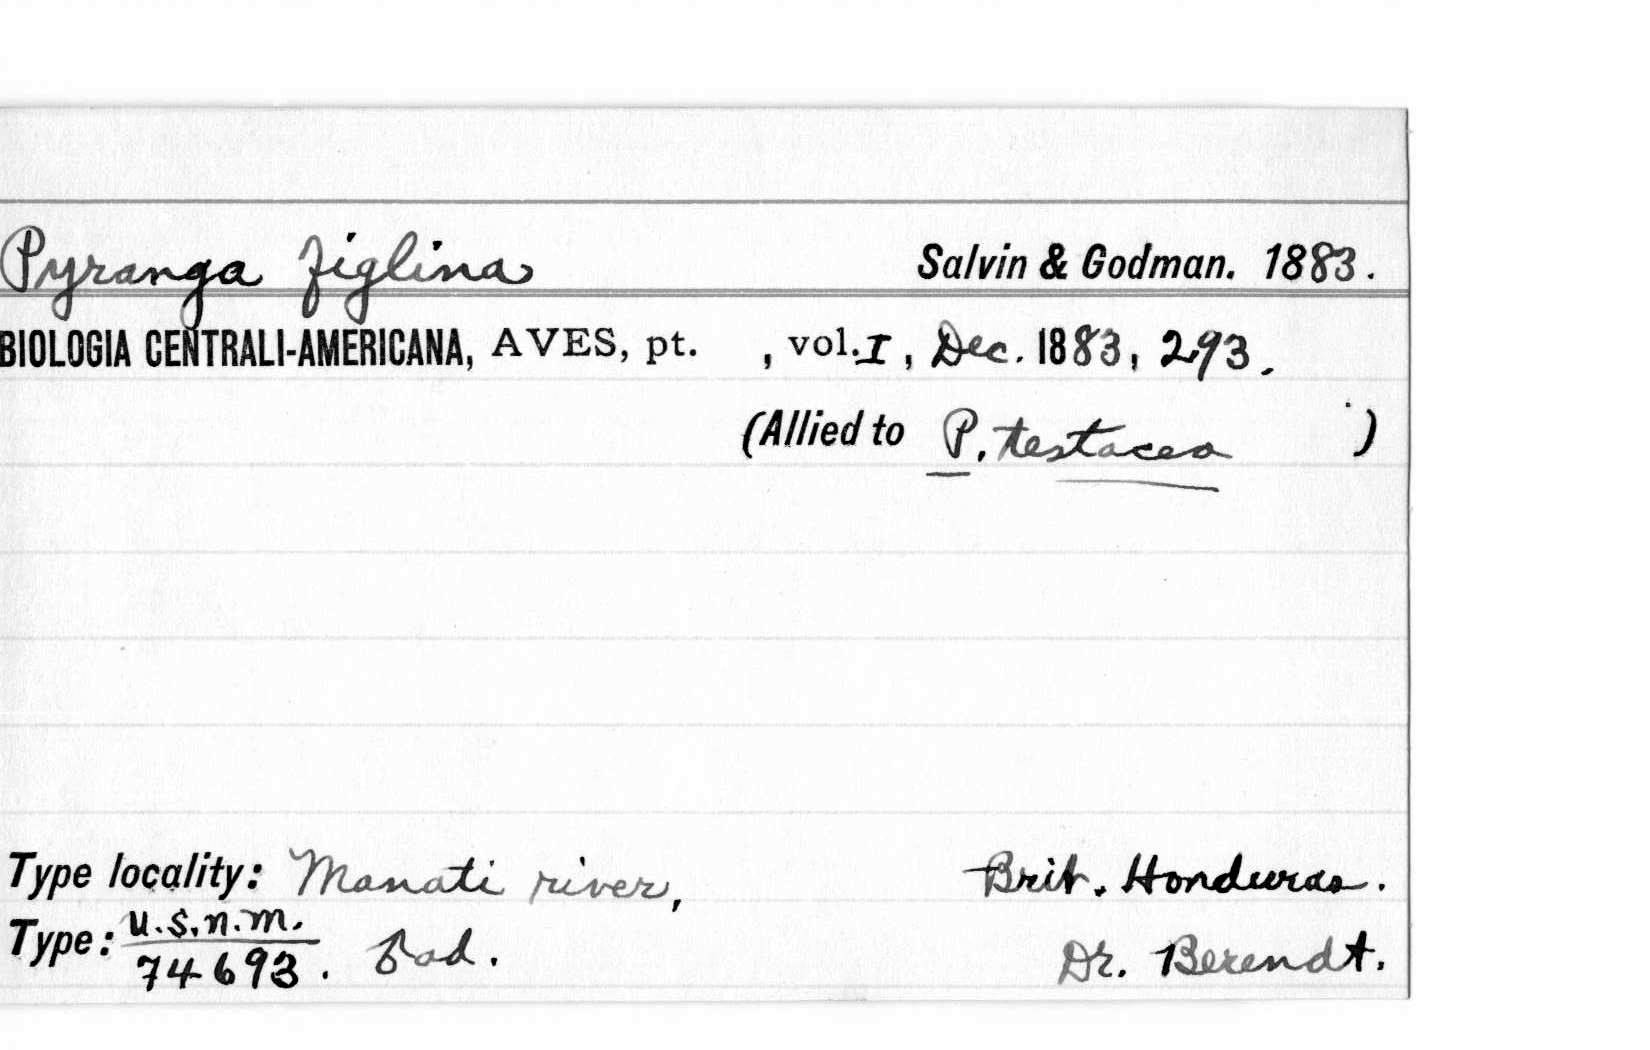 Pyranga figlina Salvin & Godman. 1883.
BIOLOGIA CENTRALI-AMERICANA, AVES, pt. , vol. I, Dec. 1883, 293.
(Allied to P. testacea )
Type locality: Manati river, Brit. Honduras.
Type: U.S.N.M.
74693. ad. Dr. Berendt.